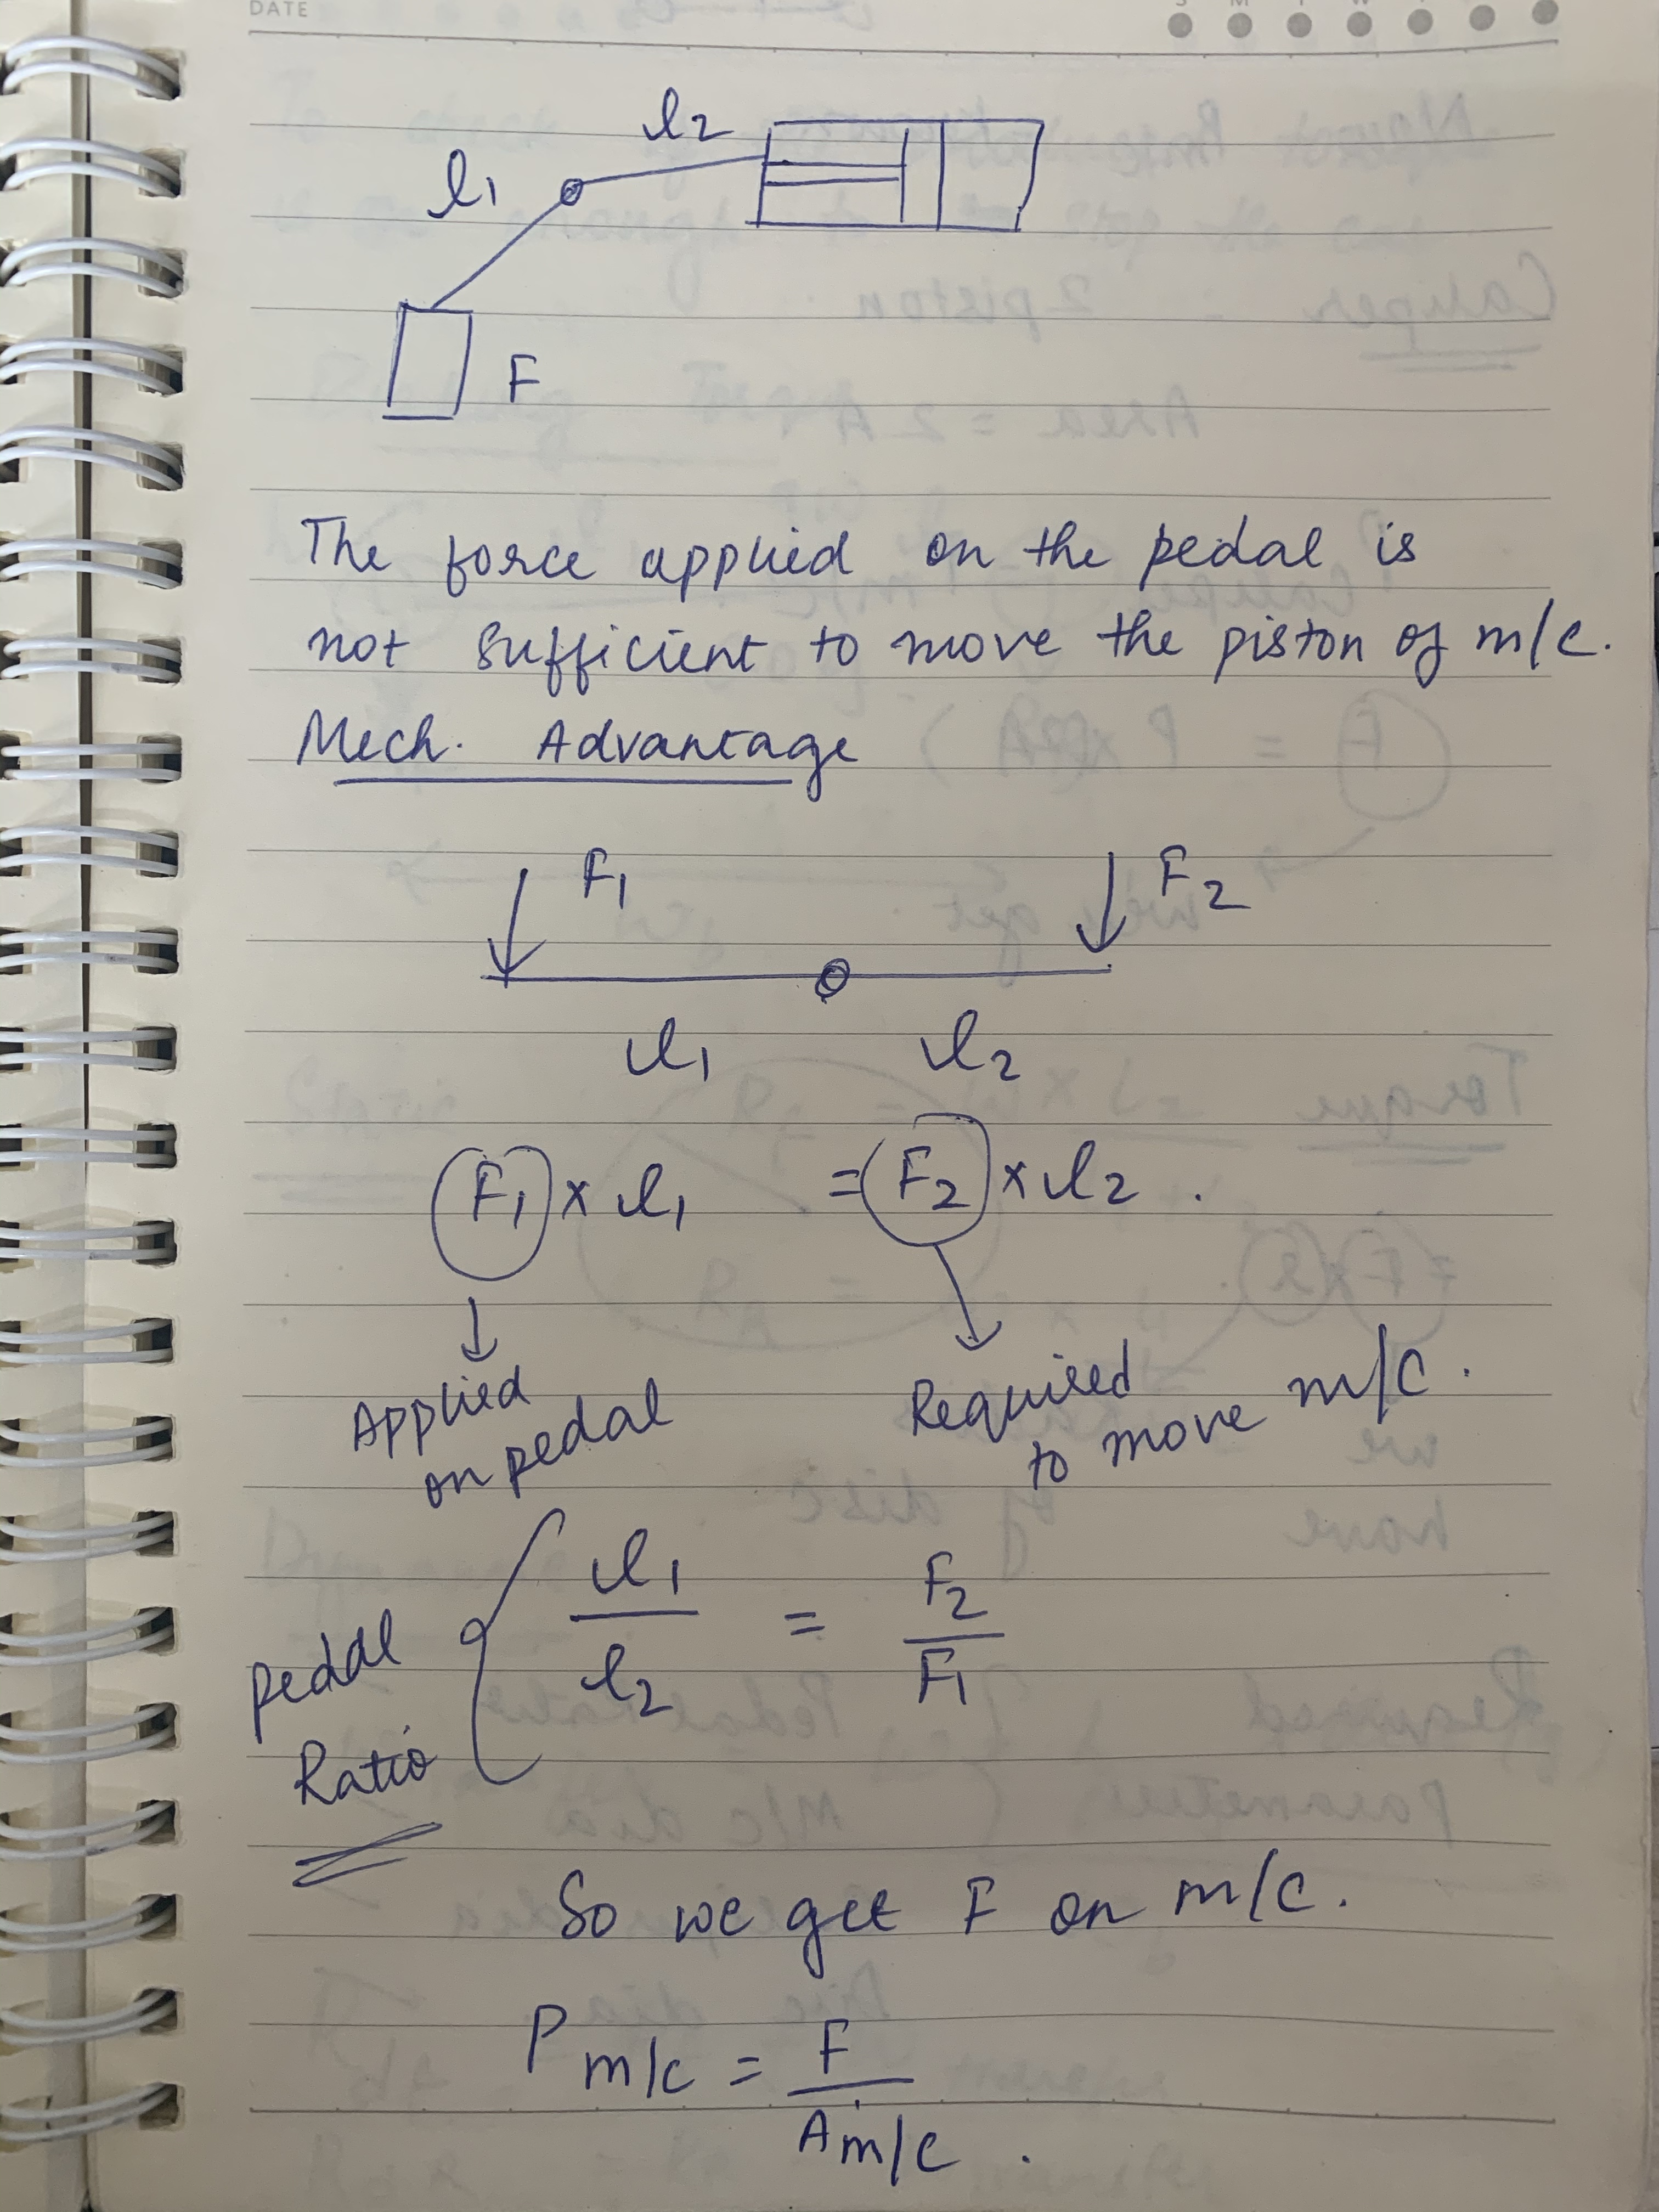 DATE
l2
l1
F
The force applied on the pedal is
not sufficient to move the piston of m/c.
Mech. Advantage
F1 F2
l1 l2
F1 x l1 = F2 x l2 .
Applied
on pedal
Required
to move m/c .
Pedal
Ratio
l1/l2 = F2/F1
So we get F on m/c.
P m/c = F / A m/c .